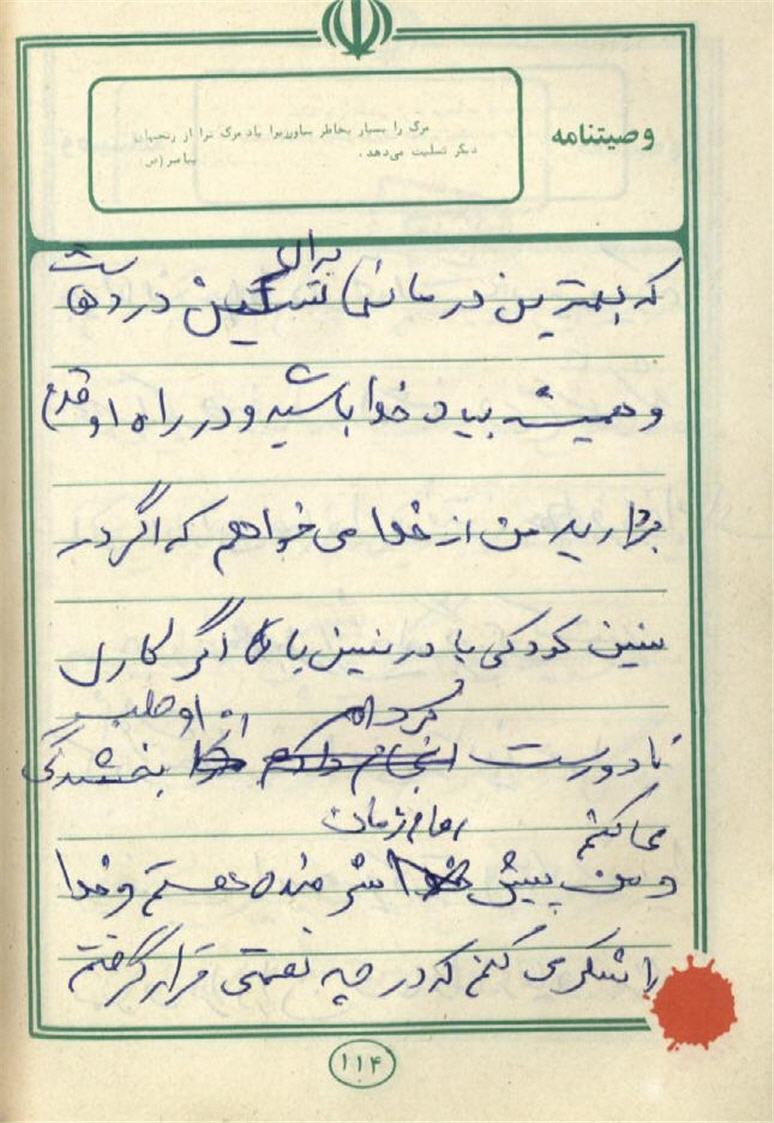 وصیتنامه
مرگ را بسیار بخاطر بیاورید زیرا یاد مرگ ترا از رنجهای
دیگر تسلیت می‌دهد.
پیامبر (ص)
برای
که بهترین درمانها تسکین دردهاست
و همیشه بیاد خدا باشید و در راه او قدم
بگذارید من از خدا می‌خواهم که اگر در
سنین کودکی یا در سنین بالا اگر کارل
کرده‌ام از او طلب
نادورست انجام داده‌ام بخشندگی
می‌کنم امام زمان
و من پیش خدا شرمنده هستم و خدا
را شکر می کنم که در چه نعمتی قرار گرفتم
۱۱۴